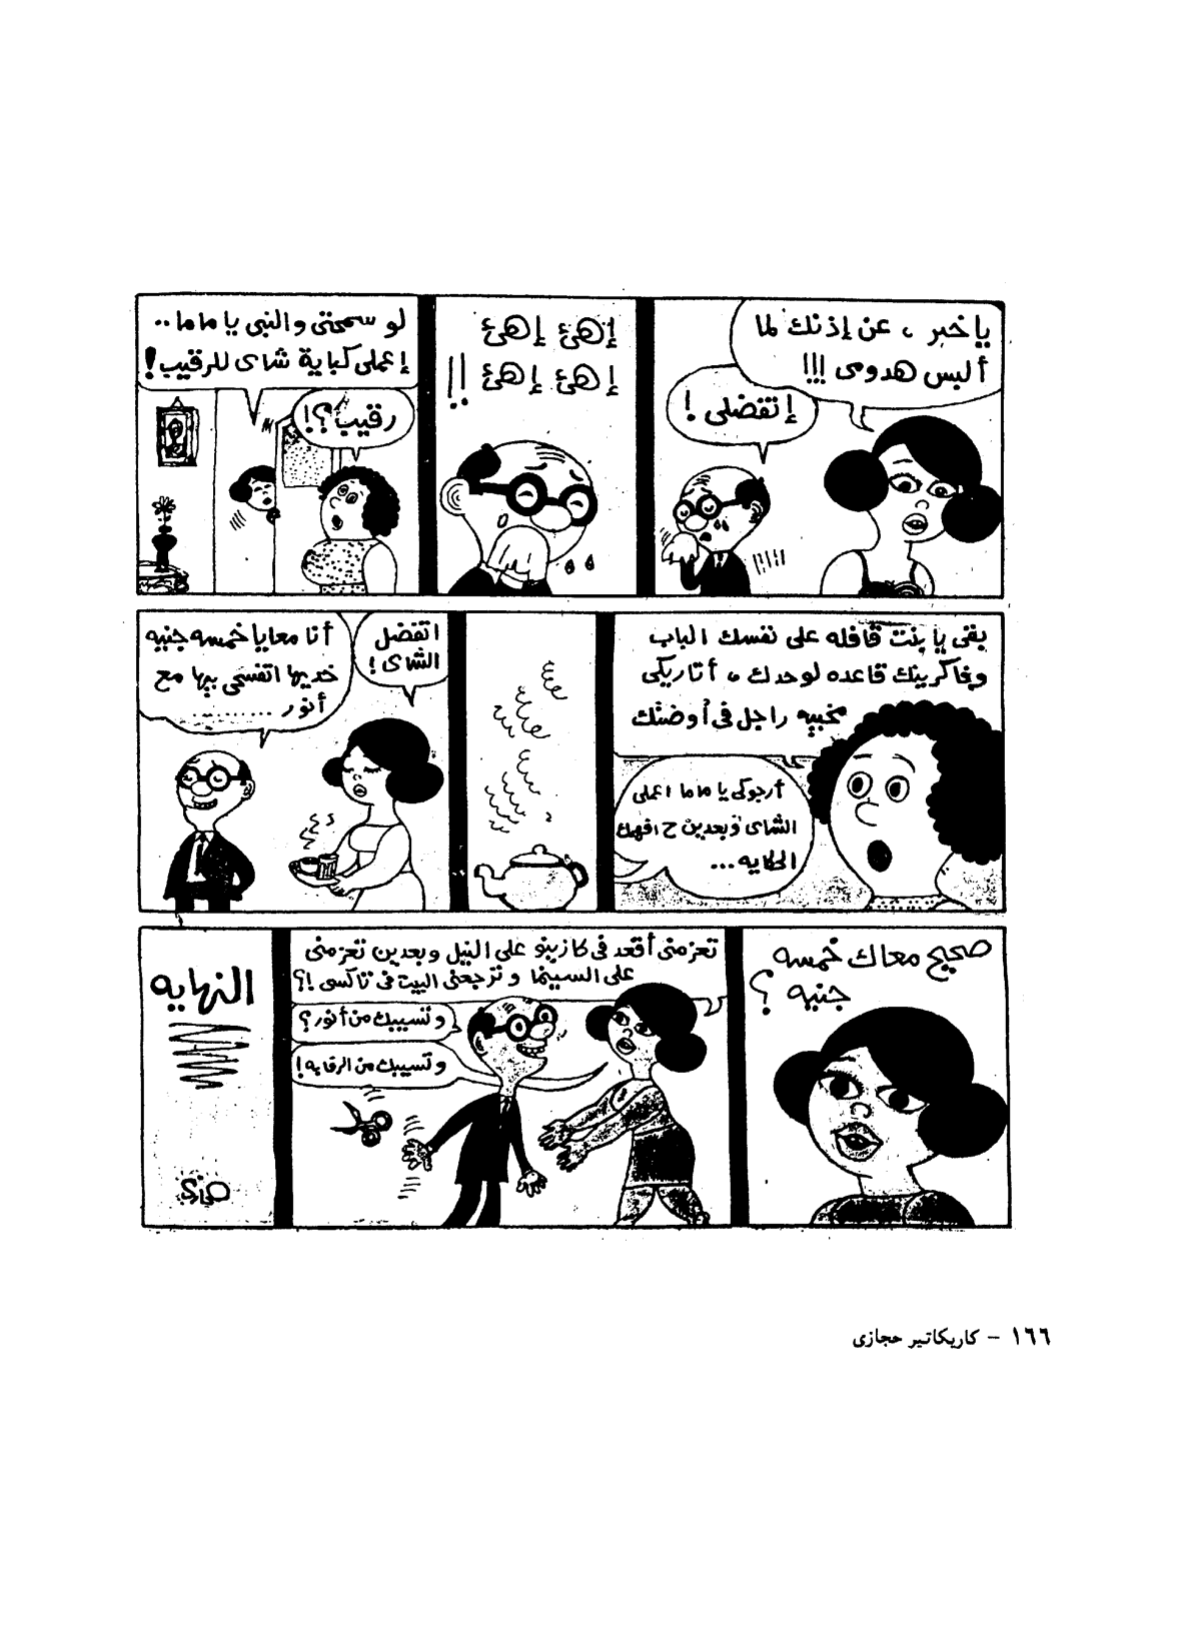 ياخبر ، عن إذنك لما
ألبس هدومى !!!
إتفضلى !
إهئ إهئ
إهئ إهئ !!
لو سمحتى والنبى يا ماما ..
إعملى كباية شاى للرقيب !
رقيب ؟!
بقى يا بنت قافله على نفسك الباب
وفاكرينك قاعده لوحدك ، أتاريكى
مخبيه راجل فى أوضتك
أرجوكى يا ماما اعملى
الشاى وبعدين ح افهمك
الحكايه ...
اتفضل
الشاى !
أنا معايا خمسه جنيه
خديها اتفسحى بيها مع
أنور ........
صحيح معاك خمسه
جنيه ؟
تعزمنى أقعد فى كازينو على النيل وبعدين تعزمنى
على السينما وترجعنى البيت فى تاكسى !؟
وتسيبك من أنور ؟
وتسيبك من الرقابه !
النهايه
حجازى
١٦٦ – كاريكاتير حجازى